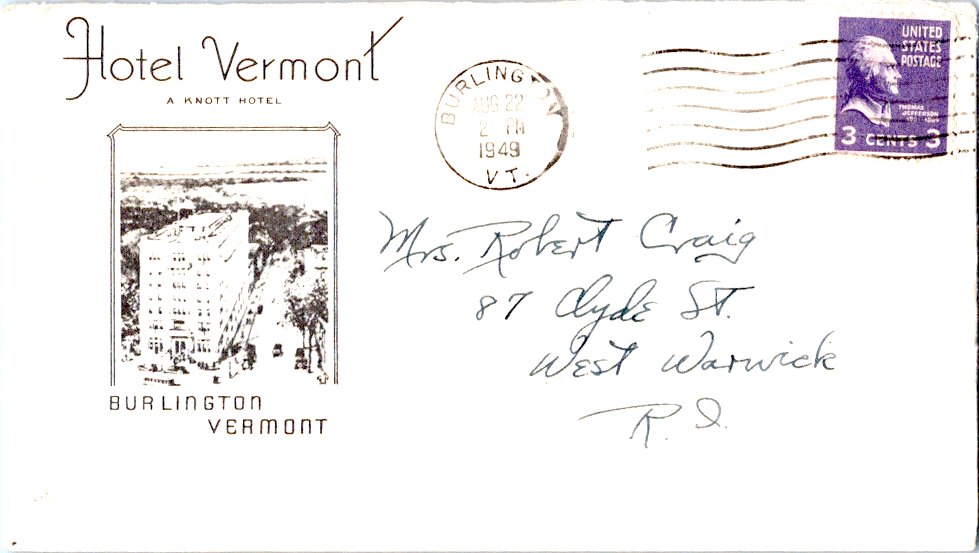 Hotel Vermont
A KNOTT HOTEL
BURLINGTON
AUG 22
2 PM
1949
VT.
UNITED
STATES
POSTAGE
THOMAS
JEFFERSON
3 CENTS 3
Mrs. Robert Craig
87 Clyde St.
West Warwick
R. I.
BURLINGTON
VERMONT